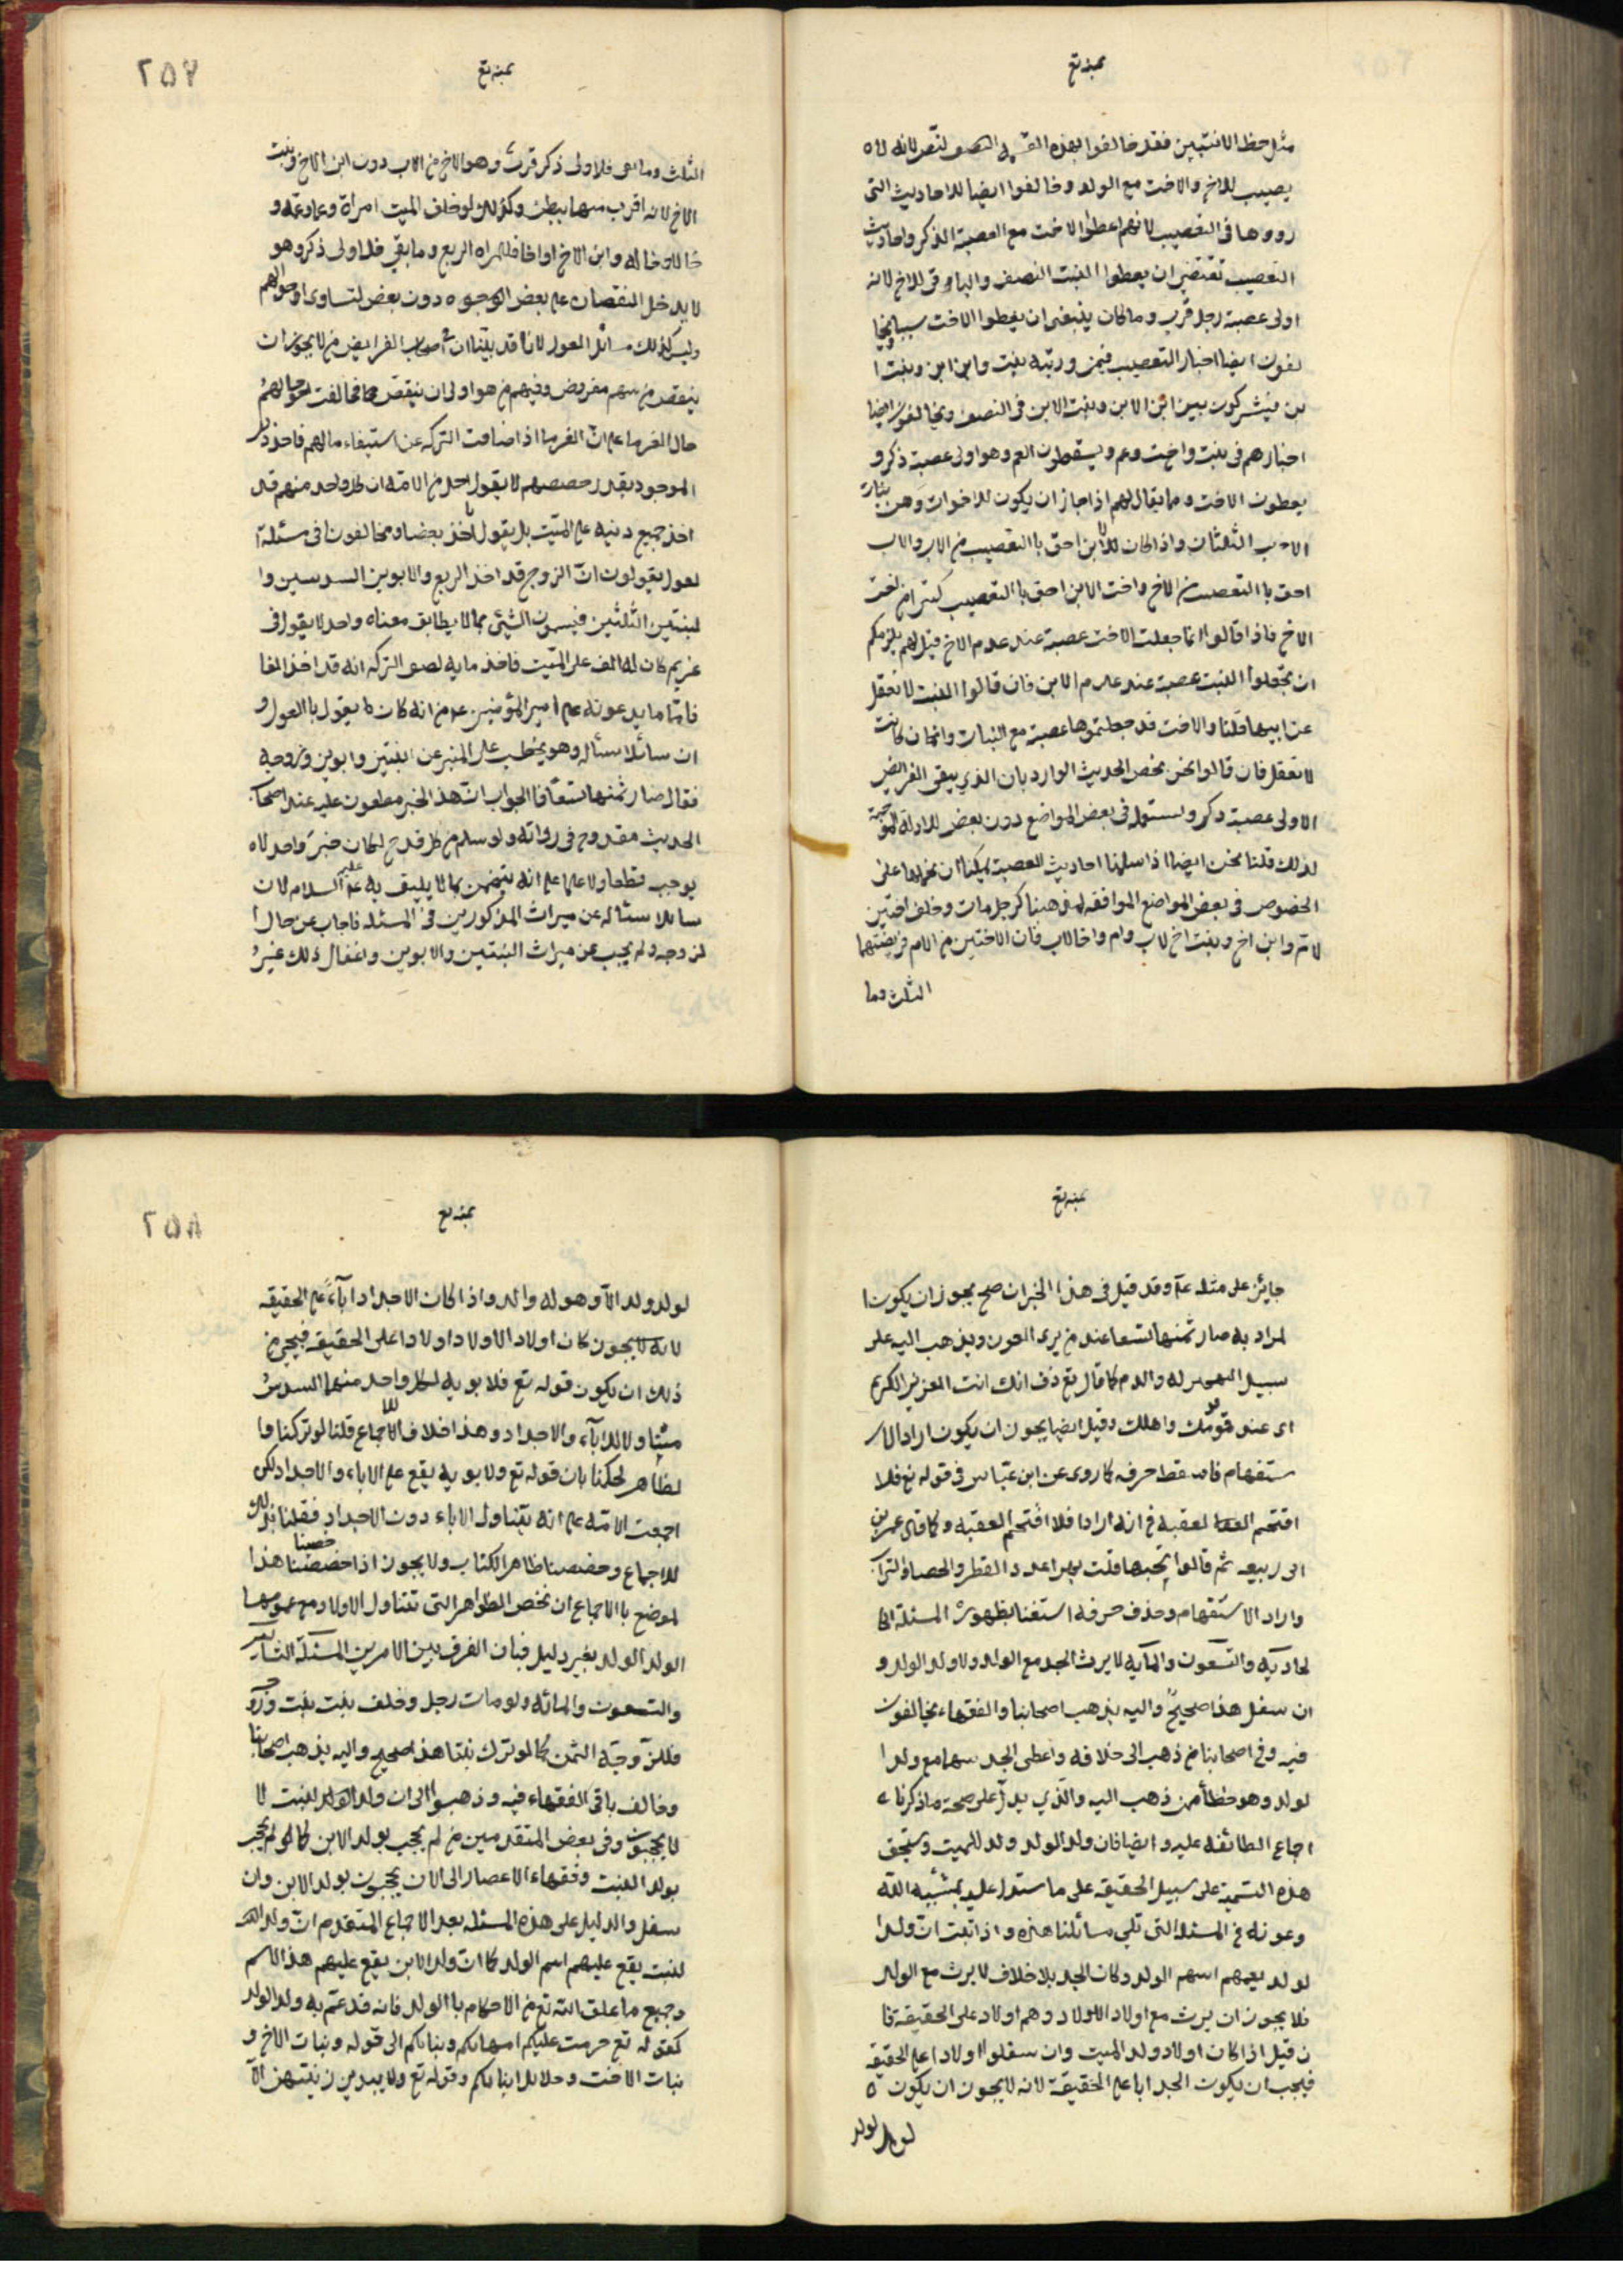 مثل حظ الانثيين فقد خالفوا بهذه لنص لانه لا
يصيب للاخ والاخت مع الولد وخالفوا ايضا للاحاديث التى
رووها فى التعصيب لانهم اعطوا الاخت مع العصبة الذكر واحاديث
التعصيب تقتضى ان يعطوا البنت النصف والباقى للاخ لانه
اولى عصبة رجل قرب وما كان ينبغى ان يعطوا الاخت سببا
لفون ايضا اخبار التعصيب فيمن ورثه بنت وابن ابن وبنت ا
بن فيشركون بين ابن الابن وبنت الابن فى النصف ويخالفون ايضا
اخبارهم فى بنت واخت وعم ويسقطون العم وهو اولى عصبة ذكر و
يعطون الاخت ومما يقال لهم اذا جاز ان يكون للاخوات وهن بنات
الاب الثلثان واذا كان للابن احق باالتعصيب من الاب والاب
احق باالتعصيب من الاخ واخت الابن احق باالتعصيب كثيرا من اخت
الاخ فاذا قالوا انما جعلت الاخت عصبة عند عدم الاخ قيل لهم يلزمكم
ان تجعلوا البنت عصبة عند عدم الابن فان قالوا البنت لا تعقل
عن ابيها قلنا والاخت قد جعلتموها عصبة مع البنات وان كانت
لا تعقل فان قالوا نحن نخص الحديث الوارد بان الذي يبقى الفرايض
الاولى عصبة ذكر ونستعمله فى بعض المواضع دون بعض للادلة الموجبة
لذلك قلنا نحن ايضا اذا سلمنا احاديث العصبة يمكننا ان نحملها على
الخصوص فى بعض المواضع الموافقه لمذهبنا كرجل مات وخلف اختين
لام وابن اخ وبنت اخ لاب وام واخا لاب فان الاختين من الام فريضتهما
الثلث وما
٢٥٧
الثلث وما بقى فلاولى ذكر قرب وهو الاخ من الاب دون ابن الاخ وبنت
الاخ لانه اقرب منهما ببطن وكذلك لو خلف الميت امراة وعما وعمة و
خالا وخاله وابن الاخ او اخا فللمراه الربع وما بقي فلاولى ذكر وهو
لا يدخل النقصان على بعض الوجوه دون بعض لتساوى احوالهم
وليس كذلك مسائل العول لانا قد بينا ان فى اصحاب الفرايض من لا يجوز ان
ينقص من سهم مفروض وفيهم من هو اولى ان ينقص فخالفت احوالهم
حال الغرما على ان الغرما اذا ضاقت التركه عن استيفاء مالهم فاخذوا
الموجود بقدر حصصهم لا يقول احد من الامة ان كل واحد منهم قد
اخذ جميع دينه على الميت بل يقول اخذ بعضا ومخالفونا فى مسئلة ا
لعول يقولون ان الزوج قد اخذ الربع والابوين السدسين وا
لبنتين الثلثين فيسمون الشئ مما لا يطابق معناه واحد لا يقول فى
غريم كان له الف على الميت فاخذ مايه لضيق التركه انه قد اخذ الفا
فاما ما يدعونه على امير المؤمنين عم من انه كان يقول باالعول و
ان سائلا سئاله وهو يخطب على المنبر عن ابنتين وابوين وزوجة
فقال صار ثمنها تسعا فالجواب ان هذا الخبر مطعون عليه عند اصحاب
الحديث مقدوح فى رواته ولو سلم من كل قدح لكان خبر واحد لا
يوجب قطعا ولا علما على انه يتضمن مما لا يليق به عليه السلام لان
سايلا سئاله عن ميراث المذكورين فى المسئلة فاجاب عن حال ا
لزوجه ولم يجب عن ميراث البنتين والابوين واغفال ذلك غير
جايز على مثله عم وقد قيل فى هذا الخبر ان صح يجوز ان يكون ا
لمراد به صار ثمنها تسعا عند من يرى العون ويذهب اليه على
سبيل له والذم كما قال تع ذق انك انت العزيز الكريم
اى عند قومك واهلك وقيل ايضا يجوز ان يكون اراد الا
ستفهام فاسقط حرفه كما روى عن ابن عباس فى قوله تع فلا
اقتحم العقبه من انه اراد افلا اقتحم العقبه وكما قال عمر بن
ابى ربيعه ثم قالوا تحبها قلت بهرا عدد القطر والحصا والتراب
واراد الاستفهام وحذف حرفه استغنا بظهور المسئلة ال
حادية والتسعون والمايه لا يرث الجد مع الولد ولا ولد الولد و
ان سفل هذا صحيح واليه يذهب اصحابنا والفقهاء يخالفون
فيه وفى اصحابنا من ذهب الى خلافه واعطى الجد سهما مع ولد ا
لولد وهو خطأ ممن ذهب اليه والذي يدل على صحة ما ذكرناه
اجماع الطائفه عليه وايضا فان ولد الولد ولد للميت ويستحق
هذه التسمية على سبيل الحقيقه على ما سندل عليه بمشيه الله
وعونه فى المسئلة التى تلي مسائلنا هذه واذا ثبت ان ولد ا
لولد يعمهم اسم الولد وكان الجد بلا خلاف لا يرث مع الولد
فلا يجوز ان يرث مع اولاد الاولاد وهم اولاد على الحقيقة فا
ن قيل اذا كان اولاد ولد الميت وان سفلوا اولادا على الحقيقه
فيجب ان يكون الجد ابا على الحقيقة لانه لا يجوز ان يكون
لولد لولد
٢٥٨
لولد ولد الا وهو له والد واذا كان الاجداد اباء على الحقيقه
لانه لا يجوز كان اولاد الاولاد اولادا على الحقيقه فيجي من
ذلك ان يكون قوله تع فلابويه لكل واحد منهما السدس
متناولا للاباء والاجداد وهذا خلاف الاجماع قلنا لو تركنا وا
لظاهر لحكمنا بان قوله تع ولابويه يقع على الاباء والاجداد لكن
اجمعت الامة على انه يتناول الاباء دون الاجداد فقلنا بذلك
للاجماع وخصصنا ظاهر الكتاب ولا يجوز اذا خصصنا هذا
لموضع باالاجماع ان نخص الظواهر التى تتناول الاولاد مع عمومها
الولد الولد بغير دليل فبان الفرق بين الامرين المسئلة الثانيه
والتسعون والمائه ولو مات رجل وخلف بنت بنت وزوجه
فللزوجة الثمن كما لو ترك بنتا هذا صحيح واليه يذهب اصحابنا
وخالف باقى الفقهاء فيه وذهبوا الى ان ولد الولد للبنت لا
لا يحجبون وفى بعض المتقدمين من لم يحجب بولد الابن كما لو لم يحجب
بولد البنت وفقهاء الاعصار الى الان يحجبون بولد الابن وان
سفل والدليل على هذه المسئله بعد الاجماع المتقدم ان ولد
لبنت يقع عليهم اسم الولد كما ان ولد الابن يقع عليهم هذا الاسم
وجميع ما علق الله تع من الاحكام باالولد فانه قد عم به ولد الولد
كقوله تع حرمت عليكم امهاتكم وبناتكم الى قوله وبنات الاخ و
بنات الاخت وحلايل ابنائكم وقوله تع ولا يبدين زينتهن الا